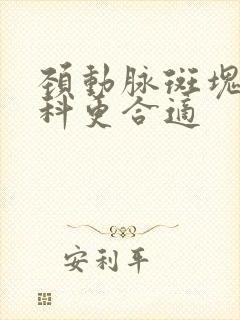 頚動脉斑塊
科更合適
安利平